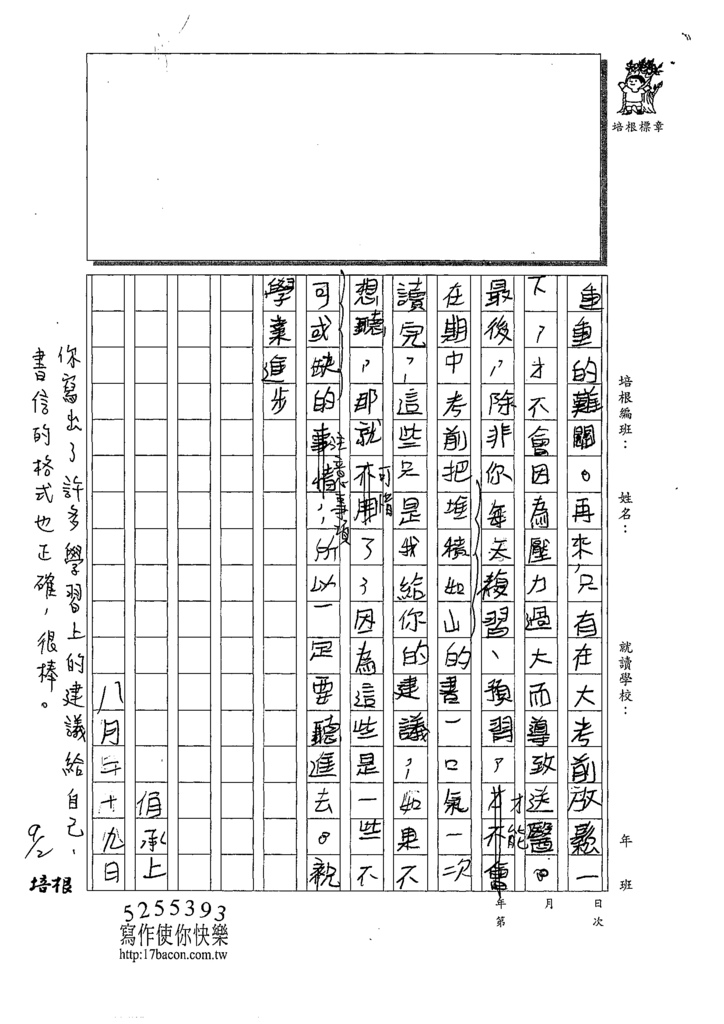 培根標章
培根編班：
姓名：
就讀學校：
年 班
重重的難關。再來,只有在大考前放鬆一
下，才不會因為壓力過大而導致送醫。
最後，除非你每天複習、預習，才不會
才能
在期中考前把堆積如山的書一口氣一次
讀完，這些只是我給你的建議，如果不
想聽，那就不用了，因為這些是一些不
可惜
可或缺的事情，所以一定要聽進去。祝
注意事項
學業進步
俏承上
八月二十九日
你寫出了許多學習上的建議給自己，
書信的格式也正確，很棒。
9/2
培根
年 月 日
第 次
5255393
寫作使你快樂
http:17bacon.com.tw